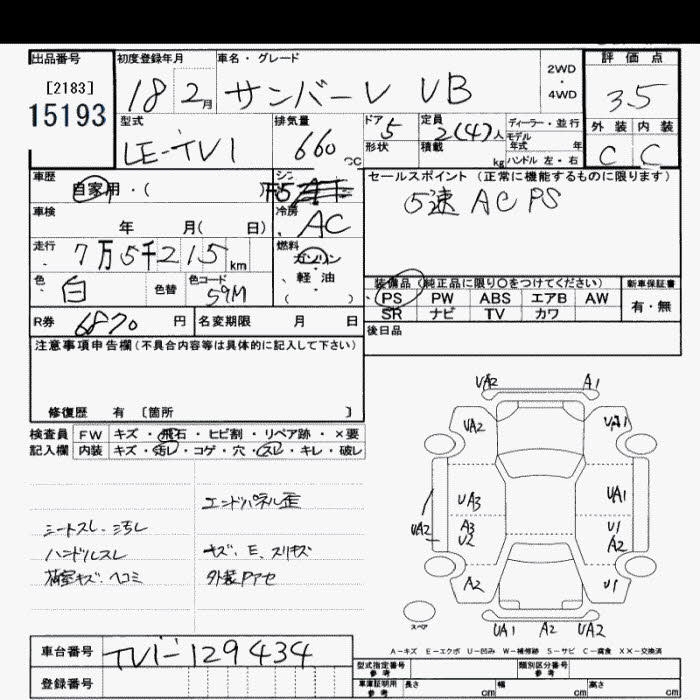 出品番号
[2183]
15193
初度登録年月
18 2月
車名・グレード
サンバーV VB
2WD
・
4WD
評価点
3.5
外装 内装
C C
型式
LE-TV1
排気量
660cc
ドア 5
形状
定員 2(4)人
積載 kg
ディーラー・並行
モデル
年式 年
ハンドル 左・右
車歴
自家用・( )
シフト
5
冷房
AC
車検
年 月( 日)
走行
7万5千215km
燃料
ガソリン
・
軽油
( )
色
白
色替
色コード
59M
R券 6870円
名変期限 月 日
セールスポイント(正常に機能するものに限ります)
5速 AC PS
装備品(純正品に限り○をつけてください)
新車保証書
PS PW ABS エアB AW
SR ナビ TV カワ
有・無
後日品
注意事項申告欄(不具合内容等は具体的に記入して下さい)
修復歴 有 [箇所 ]
検査員
記入欄
FW キズ・飛石・ヒビ割・リペア跡・×要
内装 キズ・汚レ・コゲ・穴・スレ・キレ・破レ
エンドパネル歪
シートスレ、汚レ
ハンドルスレ
キズ、E、スリキズ
荷室キズ、ヘコミ
外装Pアセ
UA2 A1
UA2 UA1
UA3 UA1
UA2
A3
U2
U1
A2
A2 U1
スペア
UA1 A2 UA2
A-キズ E-エクボ U-凹み W-補修跡 S-サビ C-腐食 XX-交換済
車台番号 TV1-129434
登録番号
型式指定番号
参考
類別区分番号
参考
車庫証明用
参考
長さ cm 幅 cm 高さ cm